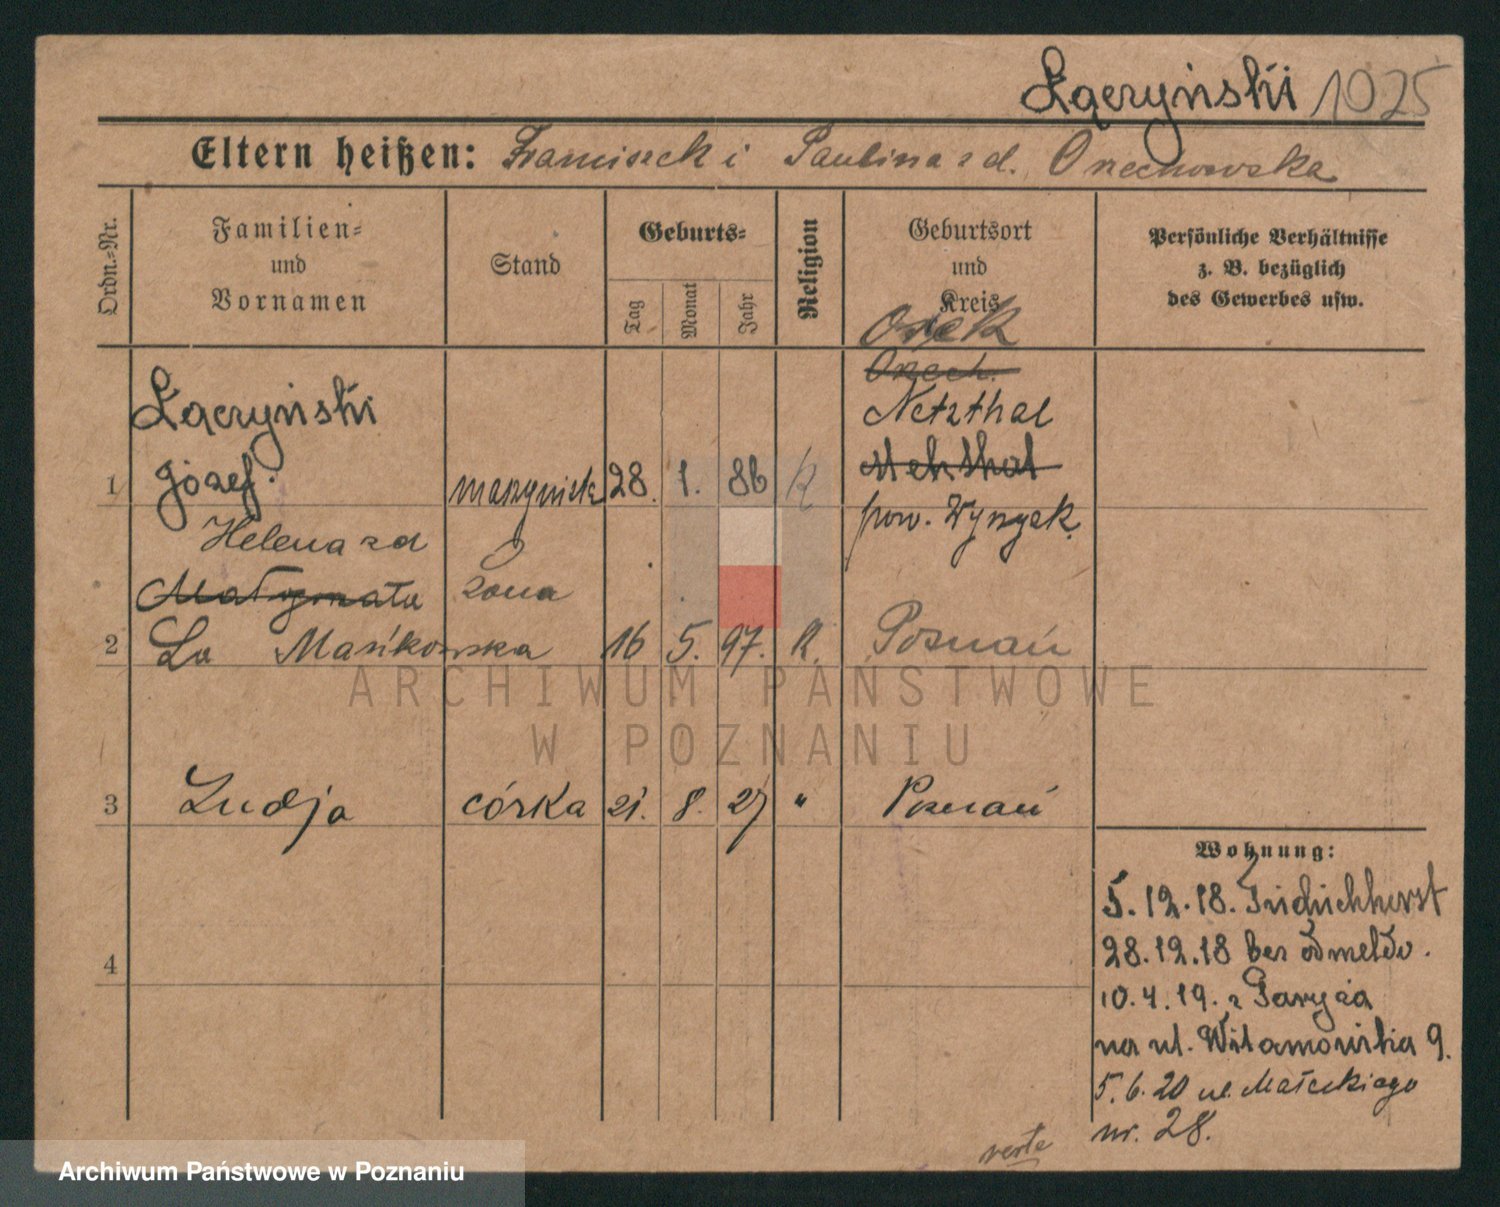 Łączyński 1025
Eltern heißen: Franciszek i Paulina zd. Orzechowska
Ordn.-Nr.
Familien-
und
Vornamen
Stand
Geburts-
Tag
Monat
Jahr
Religion
Geburtsort
und
Kreis
Persönliche Verhältnisse
z. B. bezüglich
des Gewerbes usw.
Osiek
Orzech.
Łączyński
Netzthal
Netzthal
1 Józef. maszynista 28. 1. 86 K
pow. Wyrzysk.
Helena zd
Małgorzata żona
2 Ła Mańkowska 16 5. 97. K. Poznań
ARCHIWUM PAŃSTWOWE
W POZNANIU
3 Ludja córka 21. 8. 27 " Poznań
4
Wohnung:
5.12.18.
28.12.18 bez odmeldo.
10.4.19. z Paryża
na ul. 9.
5.6.20 ul. Małeckiego
nr. 28.
verte
Archiwum Państwowe w Poznaniu